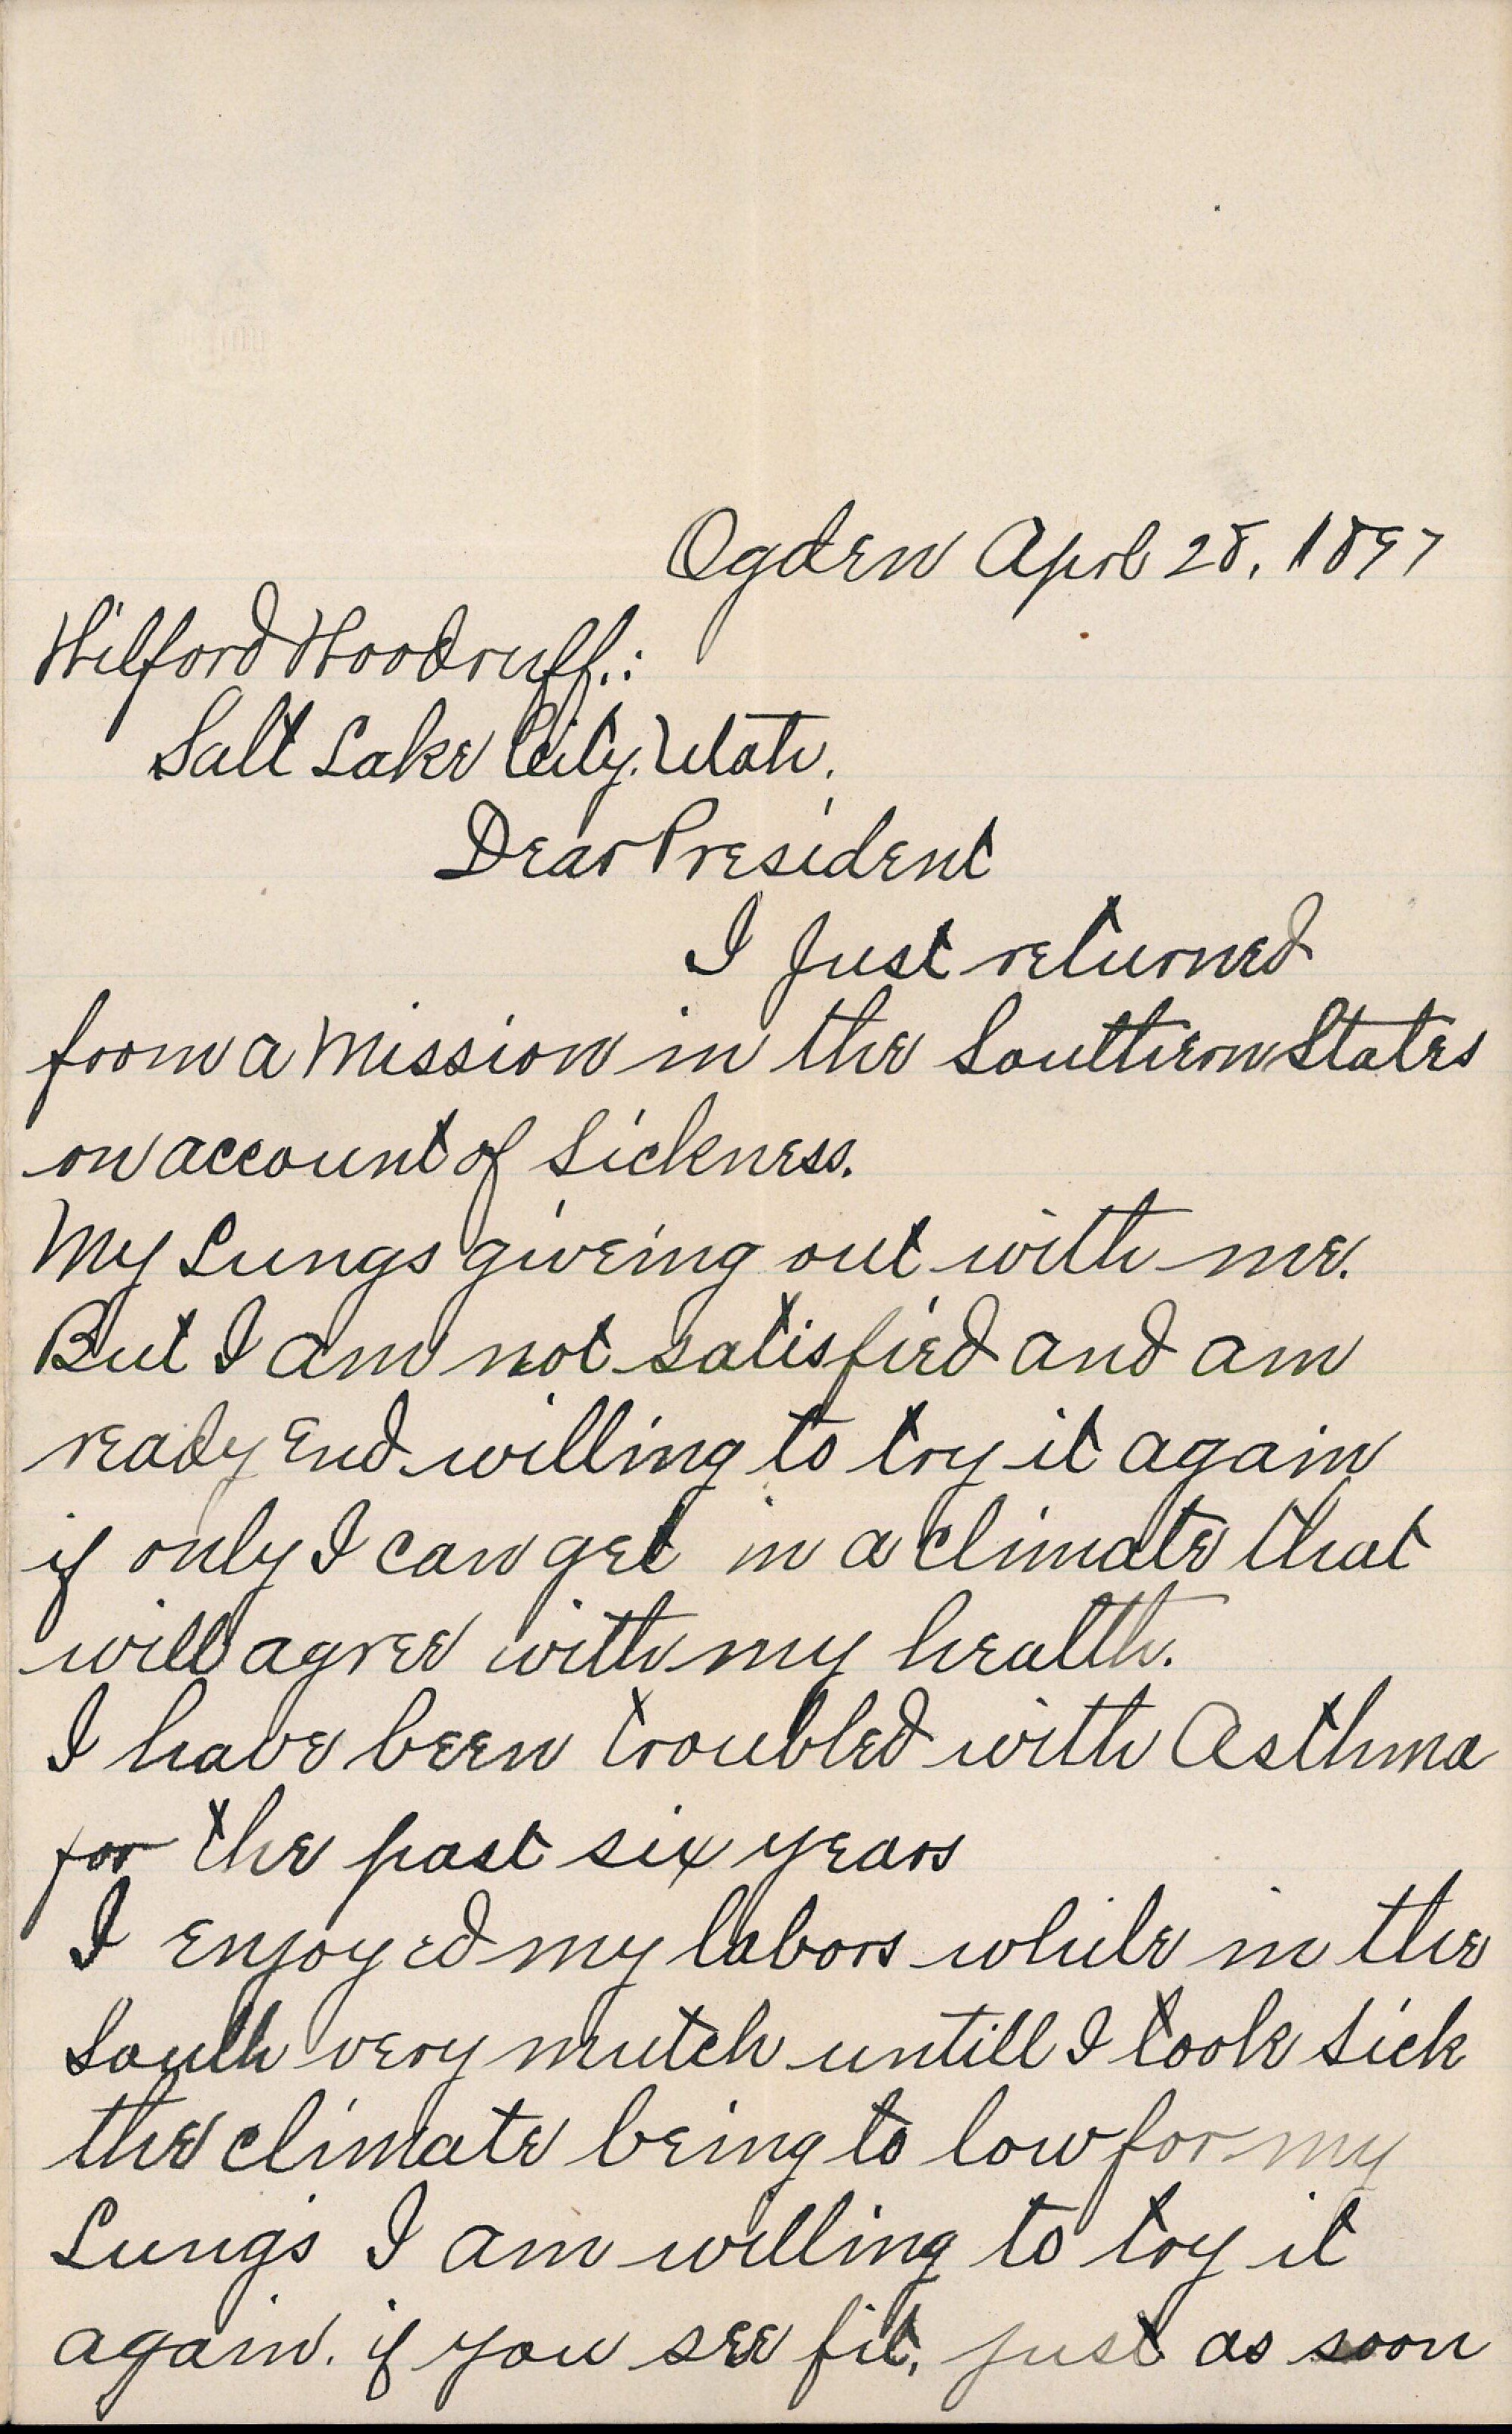 Ogden Aprl 28, 1897
Wilford Woodruff.:
Salt Lake City. Utah.
Dear President
I Just returned
from a Mission in the Southern States
on account of Sickness.
My Lungs giveing out with me.
But I am not satisfied and am
ready End willing to try it again
if only I can get in a climate that
will agree with my health.
I have been troubled with Asthma
for the past six years
I enjoyed my labors while in the
South very mutch untill I took sick
the climate being to low for my
Lungs I am willing to try it
again. if you see fit, just as soon